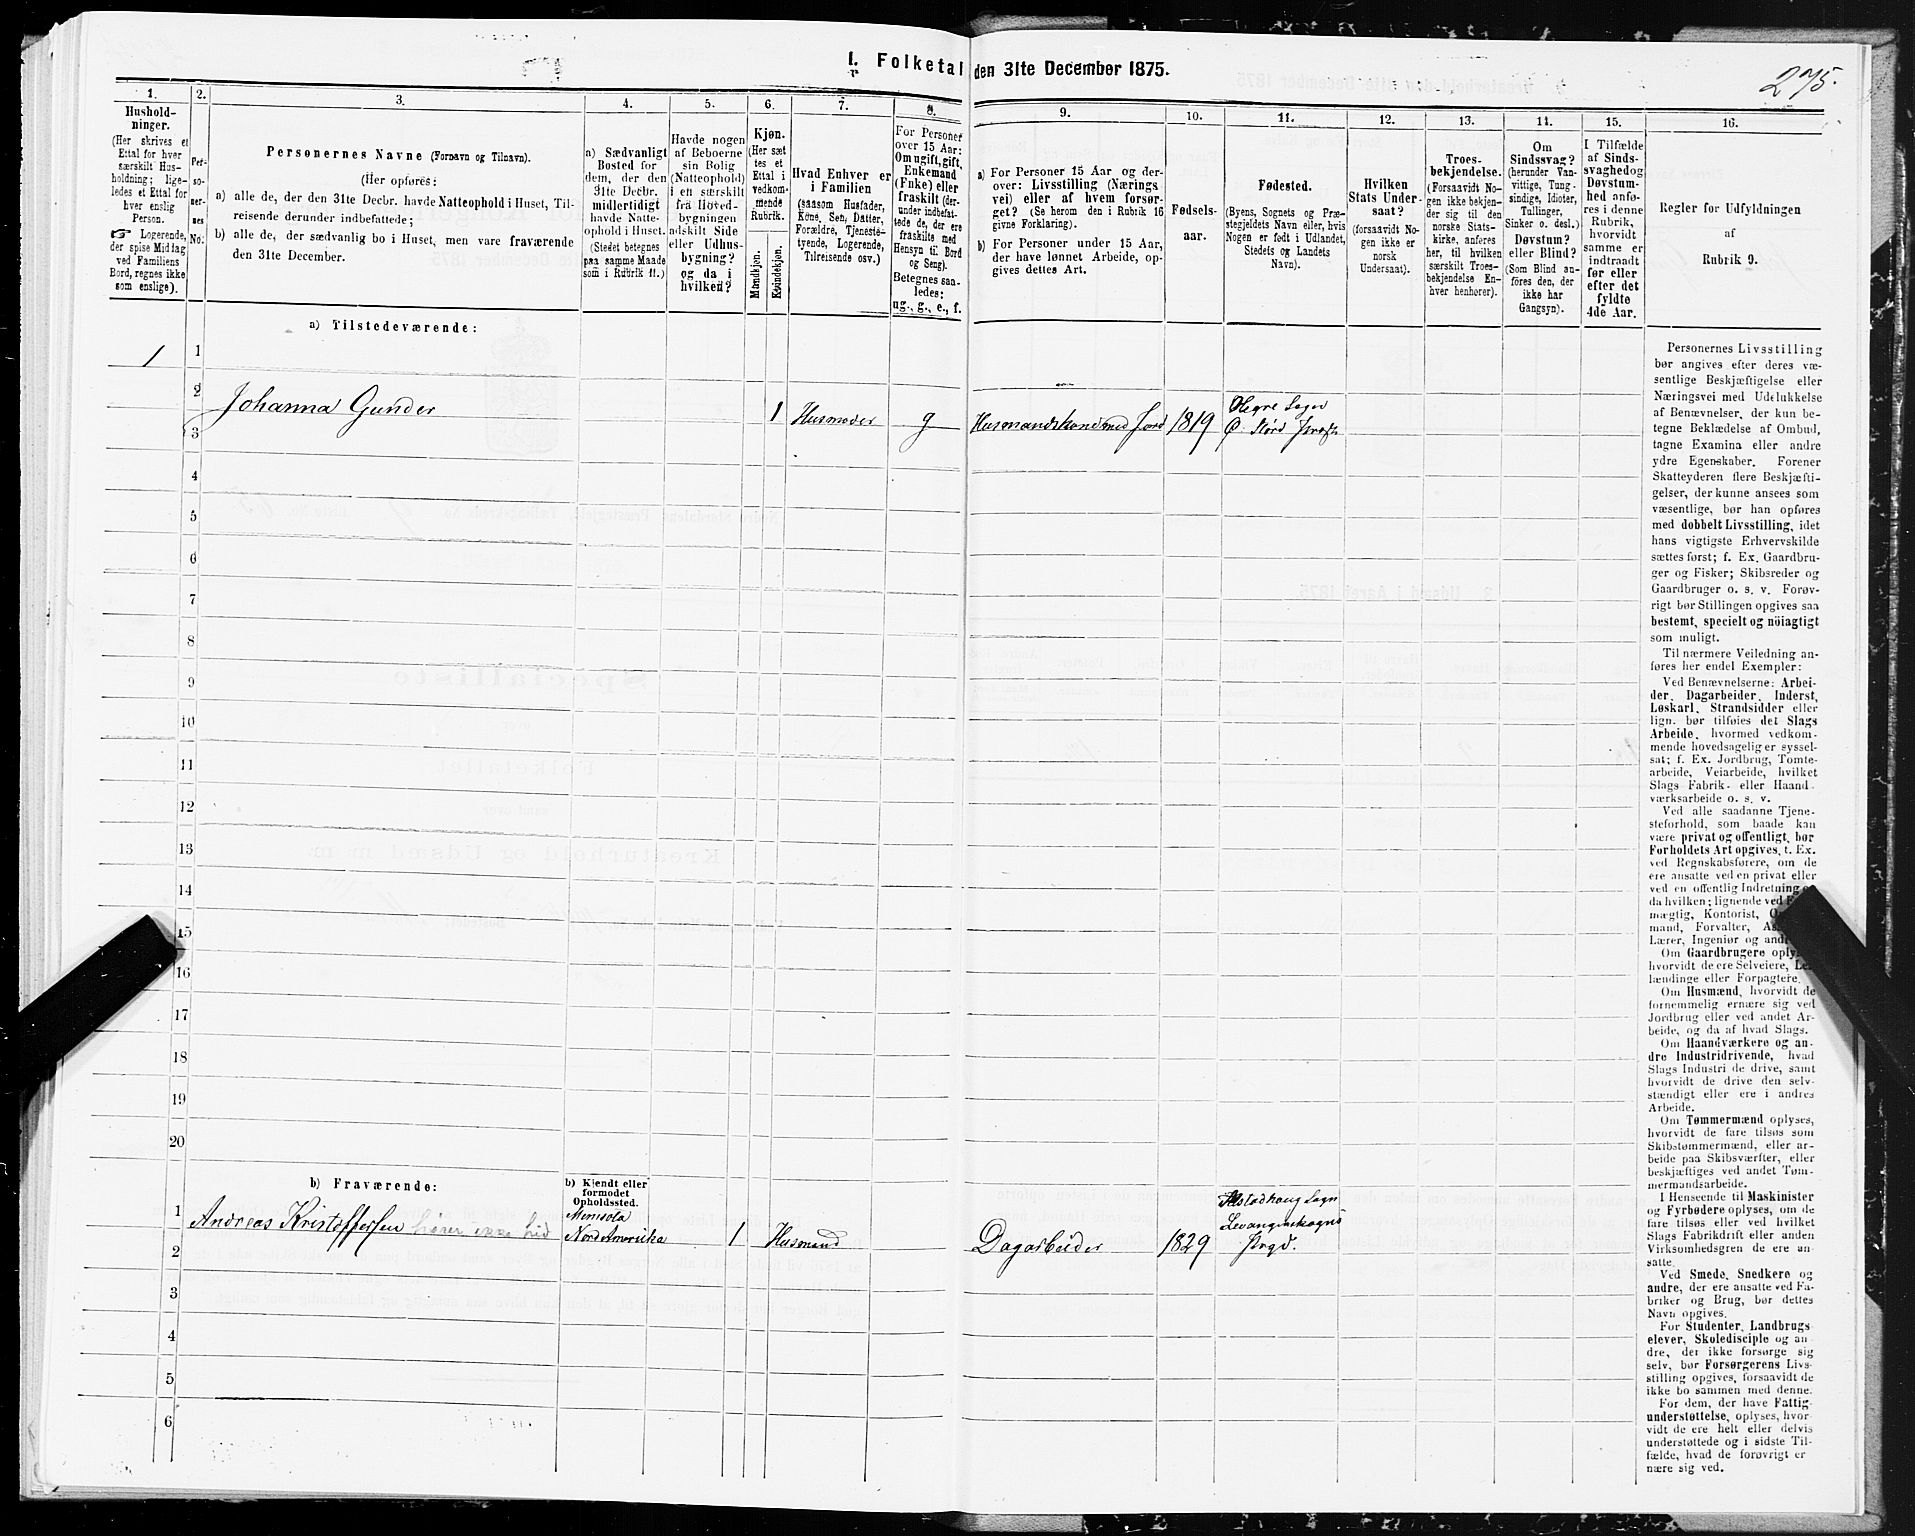 I. Folketal den 31te December 1875.
275.
1.
Hushold-
ninger.
(Her skrives et
Ettal for hver
særskilt Hus-
holdning; lige-
ledes et Ettal for
hver enslig
Person.
☞ Logerende,
der spise Middag
ved Familiens
Bord, regnes ikke
som enslige).
2.
Per-
so-
ner-
nes
No.
3.
Personernes Navne (Fornavn og Tilnavn).
(Her opføres:
a) alle de, der den 31te Decbr. havde Natteophold i Huset, Til-
reisende derunder indbefattede;
b) alle de, der sædvanlig bo i Huset, men vare fraværende
den 31te December.
4.
a) Sædvanligt
Bosted for
dem, der den
31te Decbr.
midlertidigt
havde Natte-
ophold i Huset.
(Stedet betegnes
paa samme Maade
som i Rubrik 11.)
5.
Havde nogen
af Beboerne
sin Bolig
(Natteophold)
i en særskilt
fra Hoved-
bygningen
adskilt Side
eller Udhus-
bygning?
og da i
hvilken?
6.
Kjøn.
(Her sæt
tes et
Ettal i
vedkom-
mende
Rubrik.
Mandkjøn.
Kvindekjøn.
7.
Hvad Enhver er
i Familien
(saasom Husfader,
Kone, Søn, Datter,
Forældre, Tjeneste-
tyende, Logerende,
Tilreisende osv.)
8.
For Personer
over 15 Aar:
Om ugift, gift,
Enkemand
(Enke) eller
fraskilt (der-
under indbefat-
tede de, der ere
fraskilte med
Hensyn til Bord
og Seng).
Betegnes saa-
ledes:
ug., g., e., f.
9.
a) For Personer 15 Aar og der-
over: Livsstilling (Nærings
vei) eller af hvem forsør-
get? (Se herom den i Rubrik 16
givne Forklaring).
b) For Personer under 15 Aar,
der have lønnet Arbeide, op-
gives dettes Art.
10.
Fødsels-
aar.
11.
Fødested.
(Byens, Sognets og Præ-
stegjeldets Navn eller, hvis
Nogen er født i Udlandet,
Stedets og Landets
Navn).
12.
Hvilken
Stats Under-
saat?
(forsaavidt No-
gen ikke er
norsk
Undersaat).
13.
Troes-
bekjendelse.
(Forsaavidt No-
gen ikke bekjen-
der sig til den
norske Stats-
kirke, anføres
her, til hvilken
særskilt Troes-
bekjendelse En-
hver henhører).
14.
Om
Sindssvag?
(herunder Van-
vittige, Tung-
sindige, Idioter,
Tullinger,
Sinker o. desl.)
Døvstum?
eller Blind?
(Som Blind an-
føres den, der
ikke har
Gangsyn).
15.
I Tilfælde
af Sinds-
svaghed og
Døvstum-
hed anfø-
res i denne
Rubrik,
hvorvidt
samme er
indtraadt
før eller
efter det
fyldte
4de Aar.
16.
Regler for Udfyldningen
af
Rubrik 9.
a) Tilstedeværende:
1
1
2
Johanna Gunder 1 Husmoder g Husmandskone med Jord 1819 Hegre Sogn
Ø. Størd
3
4
5
6
7
8
9
10
11
12
13
14
15
16
17
18
19
20
b) Fraværende:
b) Kjendt eller
formodet
Opholdssted.
1
Andreas Kristoffersen hører ikke hid
Nord Amerika
1 Husmand Dagarbeider 1829
Alstadhoug Sogn
Levangerskogns
Prgd.
2
3
4
5
6
Personernes Livsstilling
bør angives efter deres væ-
sentlige Beskjæftigelse eller
Næringsvei med Udelukkelse
af Benævnelser, der kun be-
tegne Beklædelse af Ombud,
tagne Examina eller andre
ydre Egenskaber. Forener
Skatteyderen flere Beskjæfti-
gelser, der kunne ansees som
væsentlige, bør han opføres
med dobbelt Livsstilling, idet
hans vigtigste Erhvervskilde
sættes først; f. Ex. Gaardbru-
ger og Fisker; Skibsreder og
Gaardbruger o. s. v. Forøv-
rigt bør Stillingen opgives saa
bestemt, specielt og nöiagtigt
som muligt.
Til nærmere Veiledning an-
føres her endel Exempler:
Ved Benævnelserne: Arbei-
der, Dagarbeider, Inderst,
Løskarl, Strandsidder eller
lign. bør tilføies det Slags
Arbeide, hvormed vedkom-
mende hovedsagelig er syssel-
sat; f. Ex. Jordbrug, Tomte-
arbeide, Veiarbeide, hvilket
Slags Fabrik- eller Haand-
værksarbeide o. s. v.
Ved alle saadanne Tjene-
steforhold, som baade kan
være privat og offentligt, bør
Forholdets Art opgives, f. Ex.
ved Regnskabsførere, om de
ere ansatte ved en privat eller
ved en offentlig Indretning
da hvilken; lignende ved
mægtig, Kontorist,
mand, Forvalter,
Lærer, Ingeniør og
Om Gaardbrugere
hvorvidt de ere Selveiere,
lændinge eller Forpagtere.
Om Husmænd, hvorvidt de
fornemmelig ernære sig ved
Jordbrug eller ved andet Ar-
beide, og da af hvad Slags.
Om Haandværkere og an-
dre Industridrivende, hvad
Slags Industri de drive, samt
hvorvidt de drive den selv-
stændigt eller ere i andres
Arbeide.
Om Tømmermænd oplyses,
hvorvidt de fare tilsøs som
Skibstømmermænd, eller ar-
beide paa Skibsværfter, eller
beskjæftiges ved andet Tøm-
mermandsarbeide.
I Henseende til Maskinister
og Fyrbødere oplyses, om de
fare tilsøs eller ved hvilket
Fabrikdrift eller anden
Virksomhedsgren de ere an-
satte.
Ved Smede, Snedkere og
andre, der ere ansatte ved Fa-
briker og Brug, bør dettes
Navn opgives.
For Studenter, Landbrugs
elever, Skoledisciple og an-
dre, der ikke forsørge sig
selv, bør Forsørgerens Livs-
stilling opgives, forsaavidt de
ikke bo sammen med denne.
For dem, der have Fattig-
understøttelse, oplyses, hvor-
vidt de ere helt eller delvis
understøttede og i sidste Til-
fælde, hvad de forøvrigt er
nære sig ved.